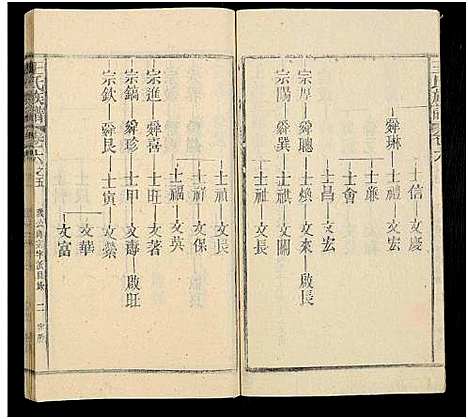 王氏族譜 卷六
士信—文慶
舜琳—士禮—文宏
士廉
士會
宗厚—舜聰—士煥—文來—啟長
士昌—文宏
宗陽—舜巽—士祉—文關
士祉—文長
士禎—文長
士福—文保
宗進—舜喜—士旺—文著
士禔—文英
宗鎬—舜珍—士甲—文壽—啟旺
宗欽—舜良—士寅—文縈
文華
文富
王氏族譜 卷六之五
二